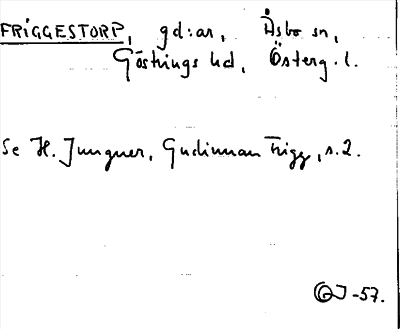 FRIGGESTORP, gd:ar, Åsbo sn,
Göstrings hd, Österg. l.
Se H. Jungner, Gudinnan Frigg, s. 2.
GJ -57.